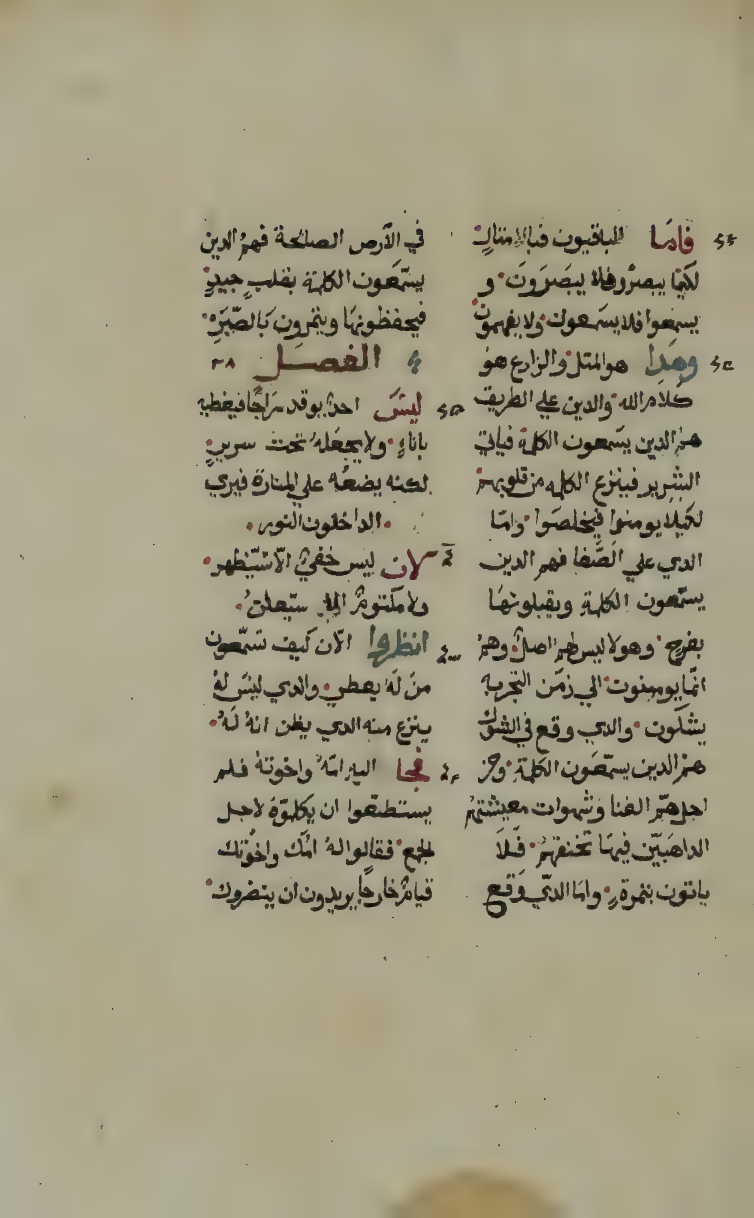 فامَا الباقيون فبالامثال
لكَيما يبصرُوا فلا يبصَروَن و
يسمعوا فلا يسَمعون ولا يفهمون
وهَذا هو المثل والزارع هوَ
كلام الله والدين علي الطريف
هم الدين يسَمعون الكلمة فياتي
الشرير فينزع الكلمه من قلوبهمْ
لكيلا يومنوا فيخلصَوا وامّا
الدي علي الصَّفا فهم الدين
يستمعون الكلمةِ ويقبلونهَا
بفرحٍ وهولا ليس لهم اصلٌ وهمُ
انمّا يومنون الي زمَن التجربهِ
يشكون والدي وقع في الشوك
هم الدين يستمعَون الكلمةِ ومن
اجل همّ الغنا وشهوات معيشتهمُ
الداهبَيّن فيهَا تخنقهمُ فَلاَ
ياتون بثمرةٍ وامّا الدّي وَقع
في الآرض الصالحة فهمُ الدين
يستمَعون الكلمة بقلبٍ جيدٍ
فيحفظونهَا ويثمرون بَالصَبَر
الفصَل ٣٨
ليسَ احدٌ يوقد سَراجًا فيغطيه
باناءٍ ولا يجعَلهُ تحت سريرٍ
لكنه يضعُه علي المنارة فيري
الداخلون النور
لان ليس خفيٌ الاّ سَيّظهر
ولا مكتومٌ الا سيّعلن
انظروا الآن كيف تسَمّعون
منَ لَهُ يعطي والدي ليسَ لهُ
ينزع منه الدي يظن انهُ لَهُ
فجا اليه امّهُ واخوتهُ فلم
يستطعّوا ان يكلموّهُ لاجل
الجمع فقالوا لهُ امّك واخوتك
قيامٌ خارجًا يريدون ان ينضروك